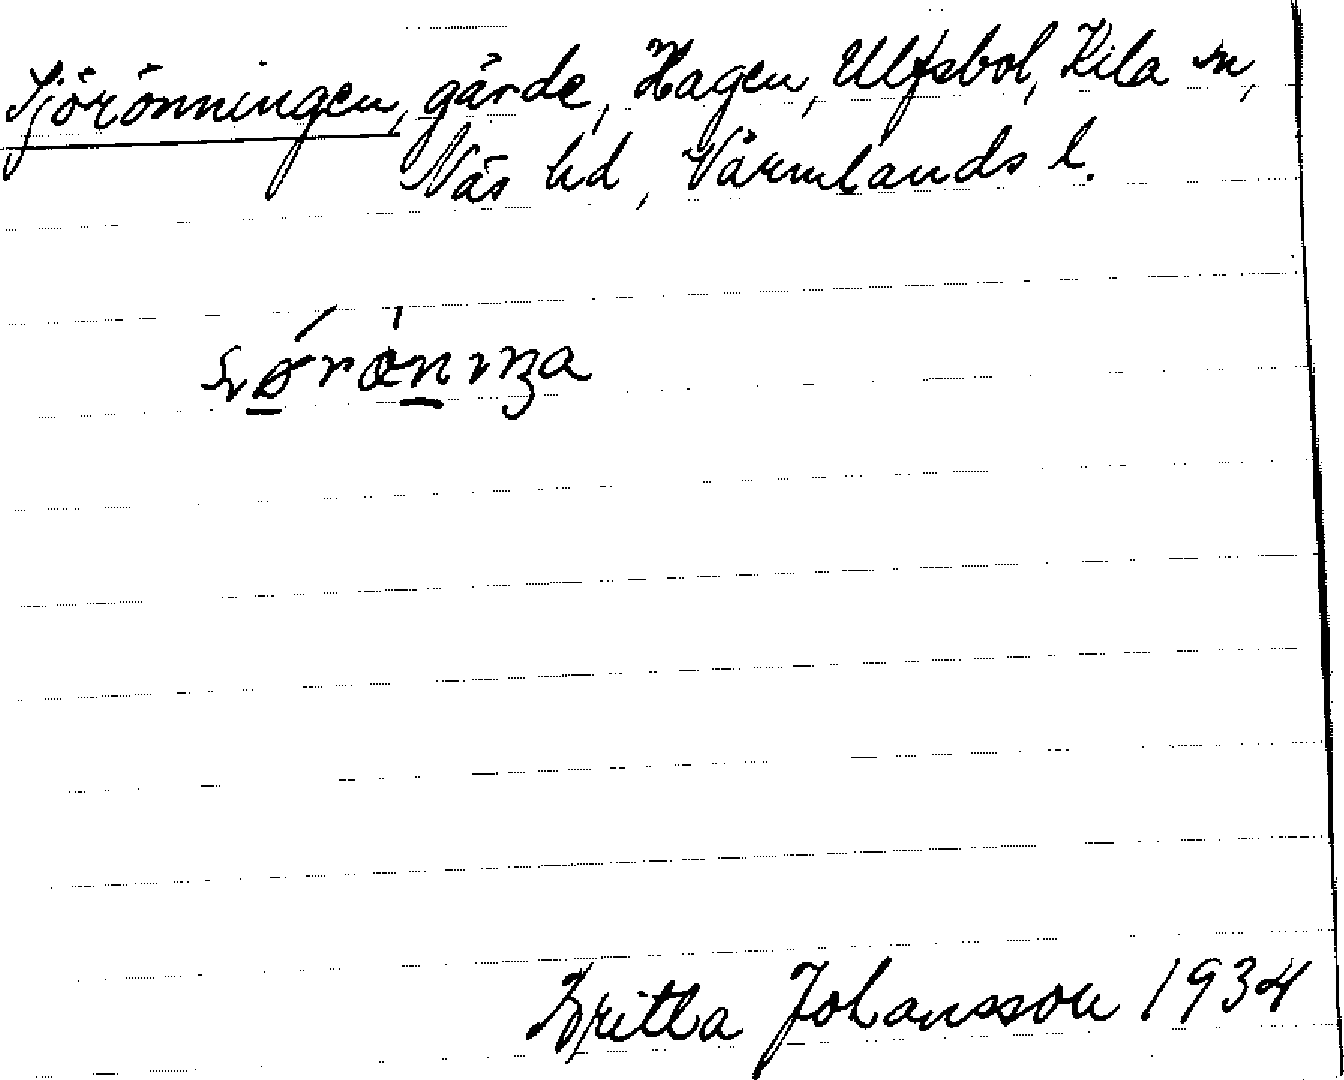 Sjörönningen, gärde, Hagen, Ulfsbol, Kila sn,
Näs hd, Värmlands l.
Britta Johansson 1934